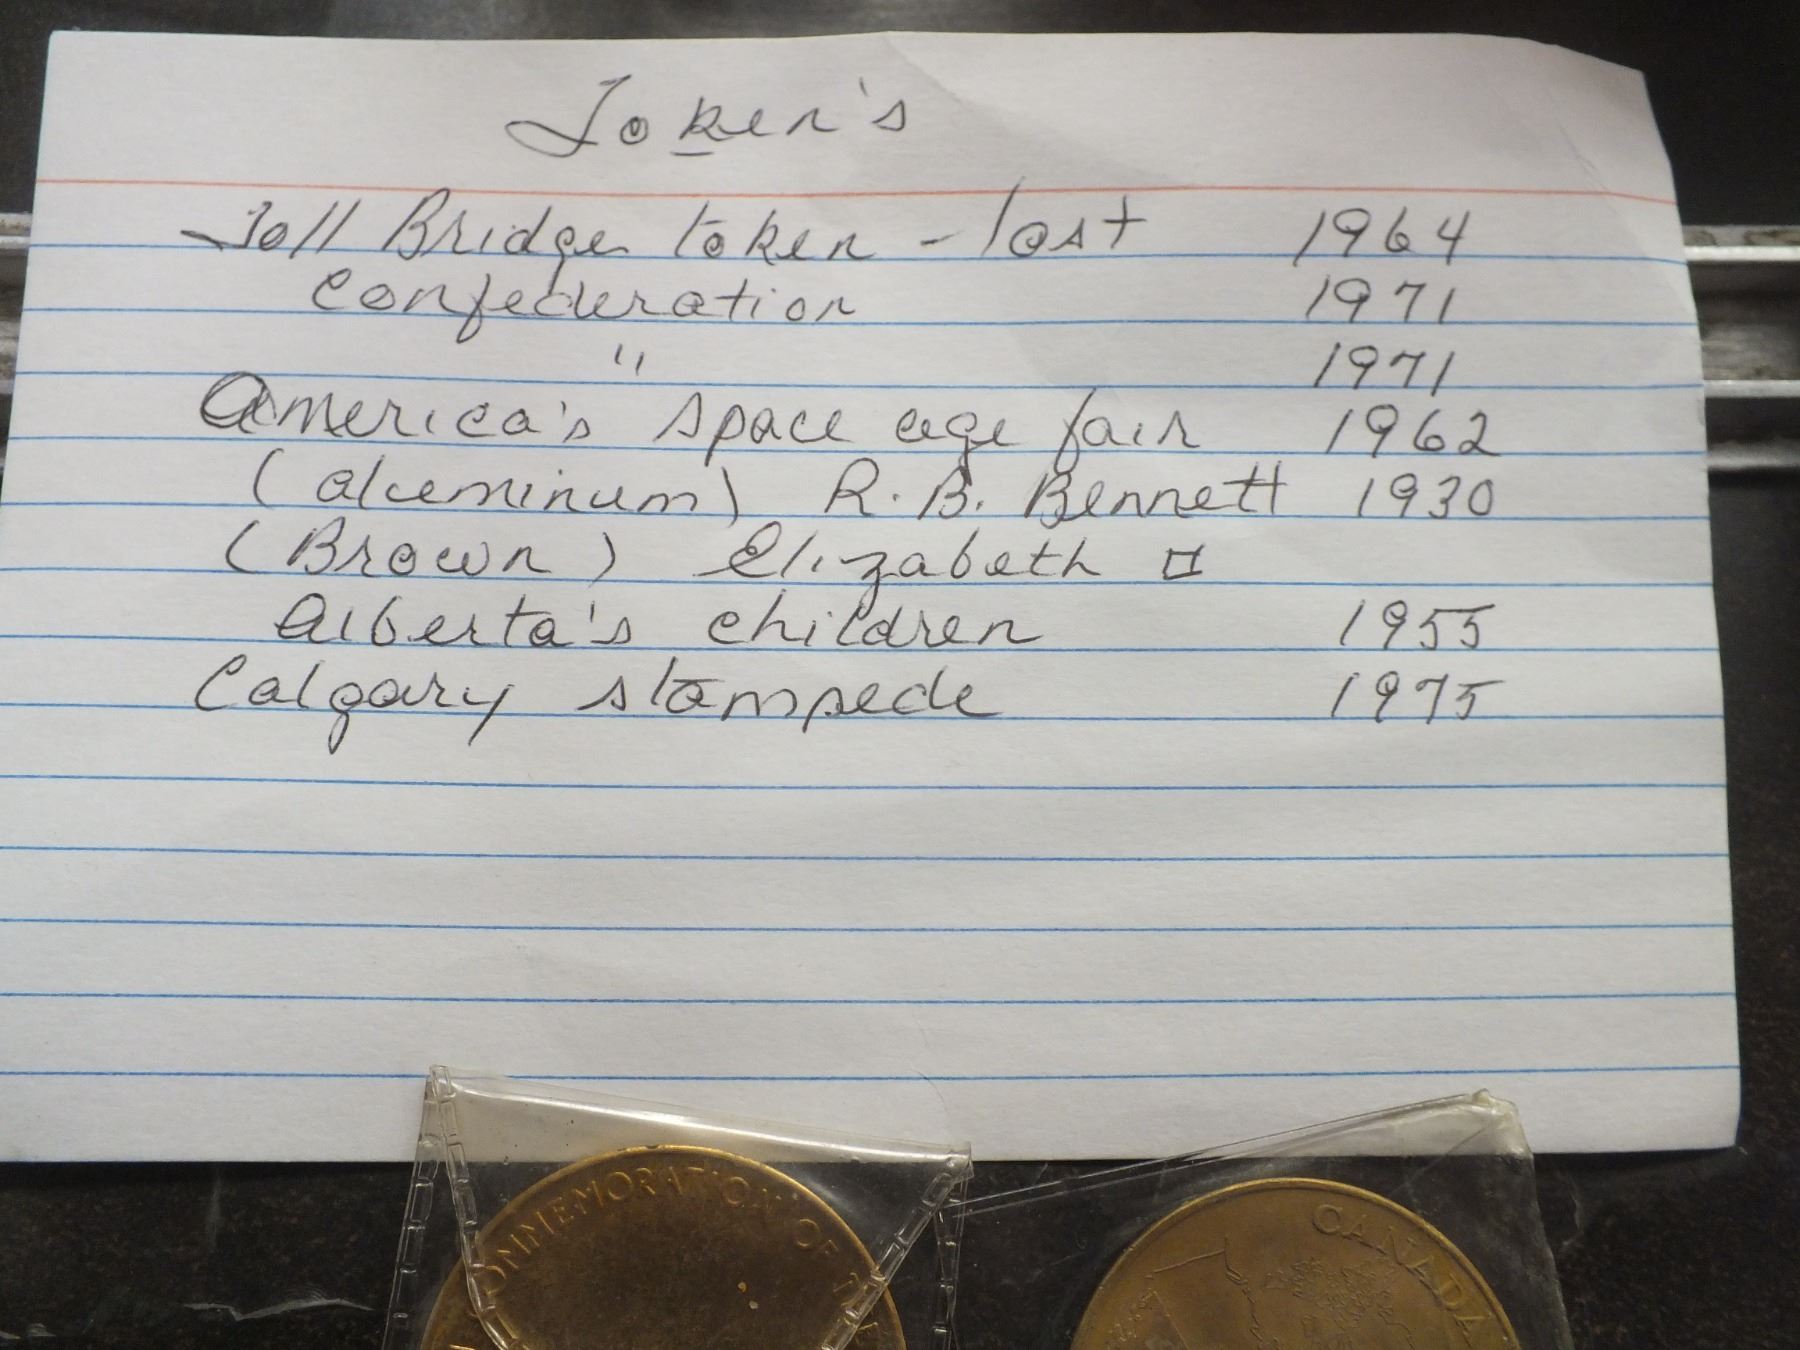 Token's
Toll Bridge token - last 1964
Confederation 1971
" 1971
America's space age fair 1962
(aluminum) R.B. Bennett 1930
(Brown) Elizabeth II
Alberta's children 1955
Calgary stampede 1975
COMMEMORATION OF
CANADA